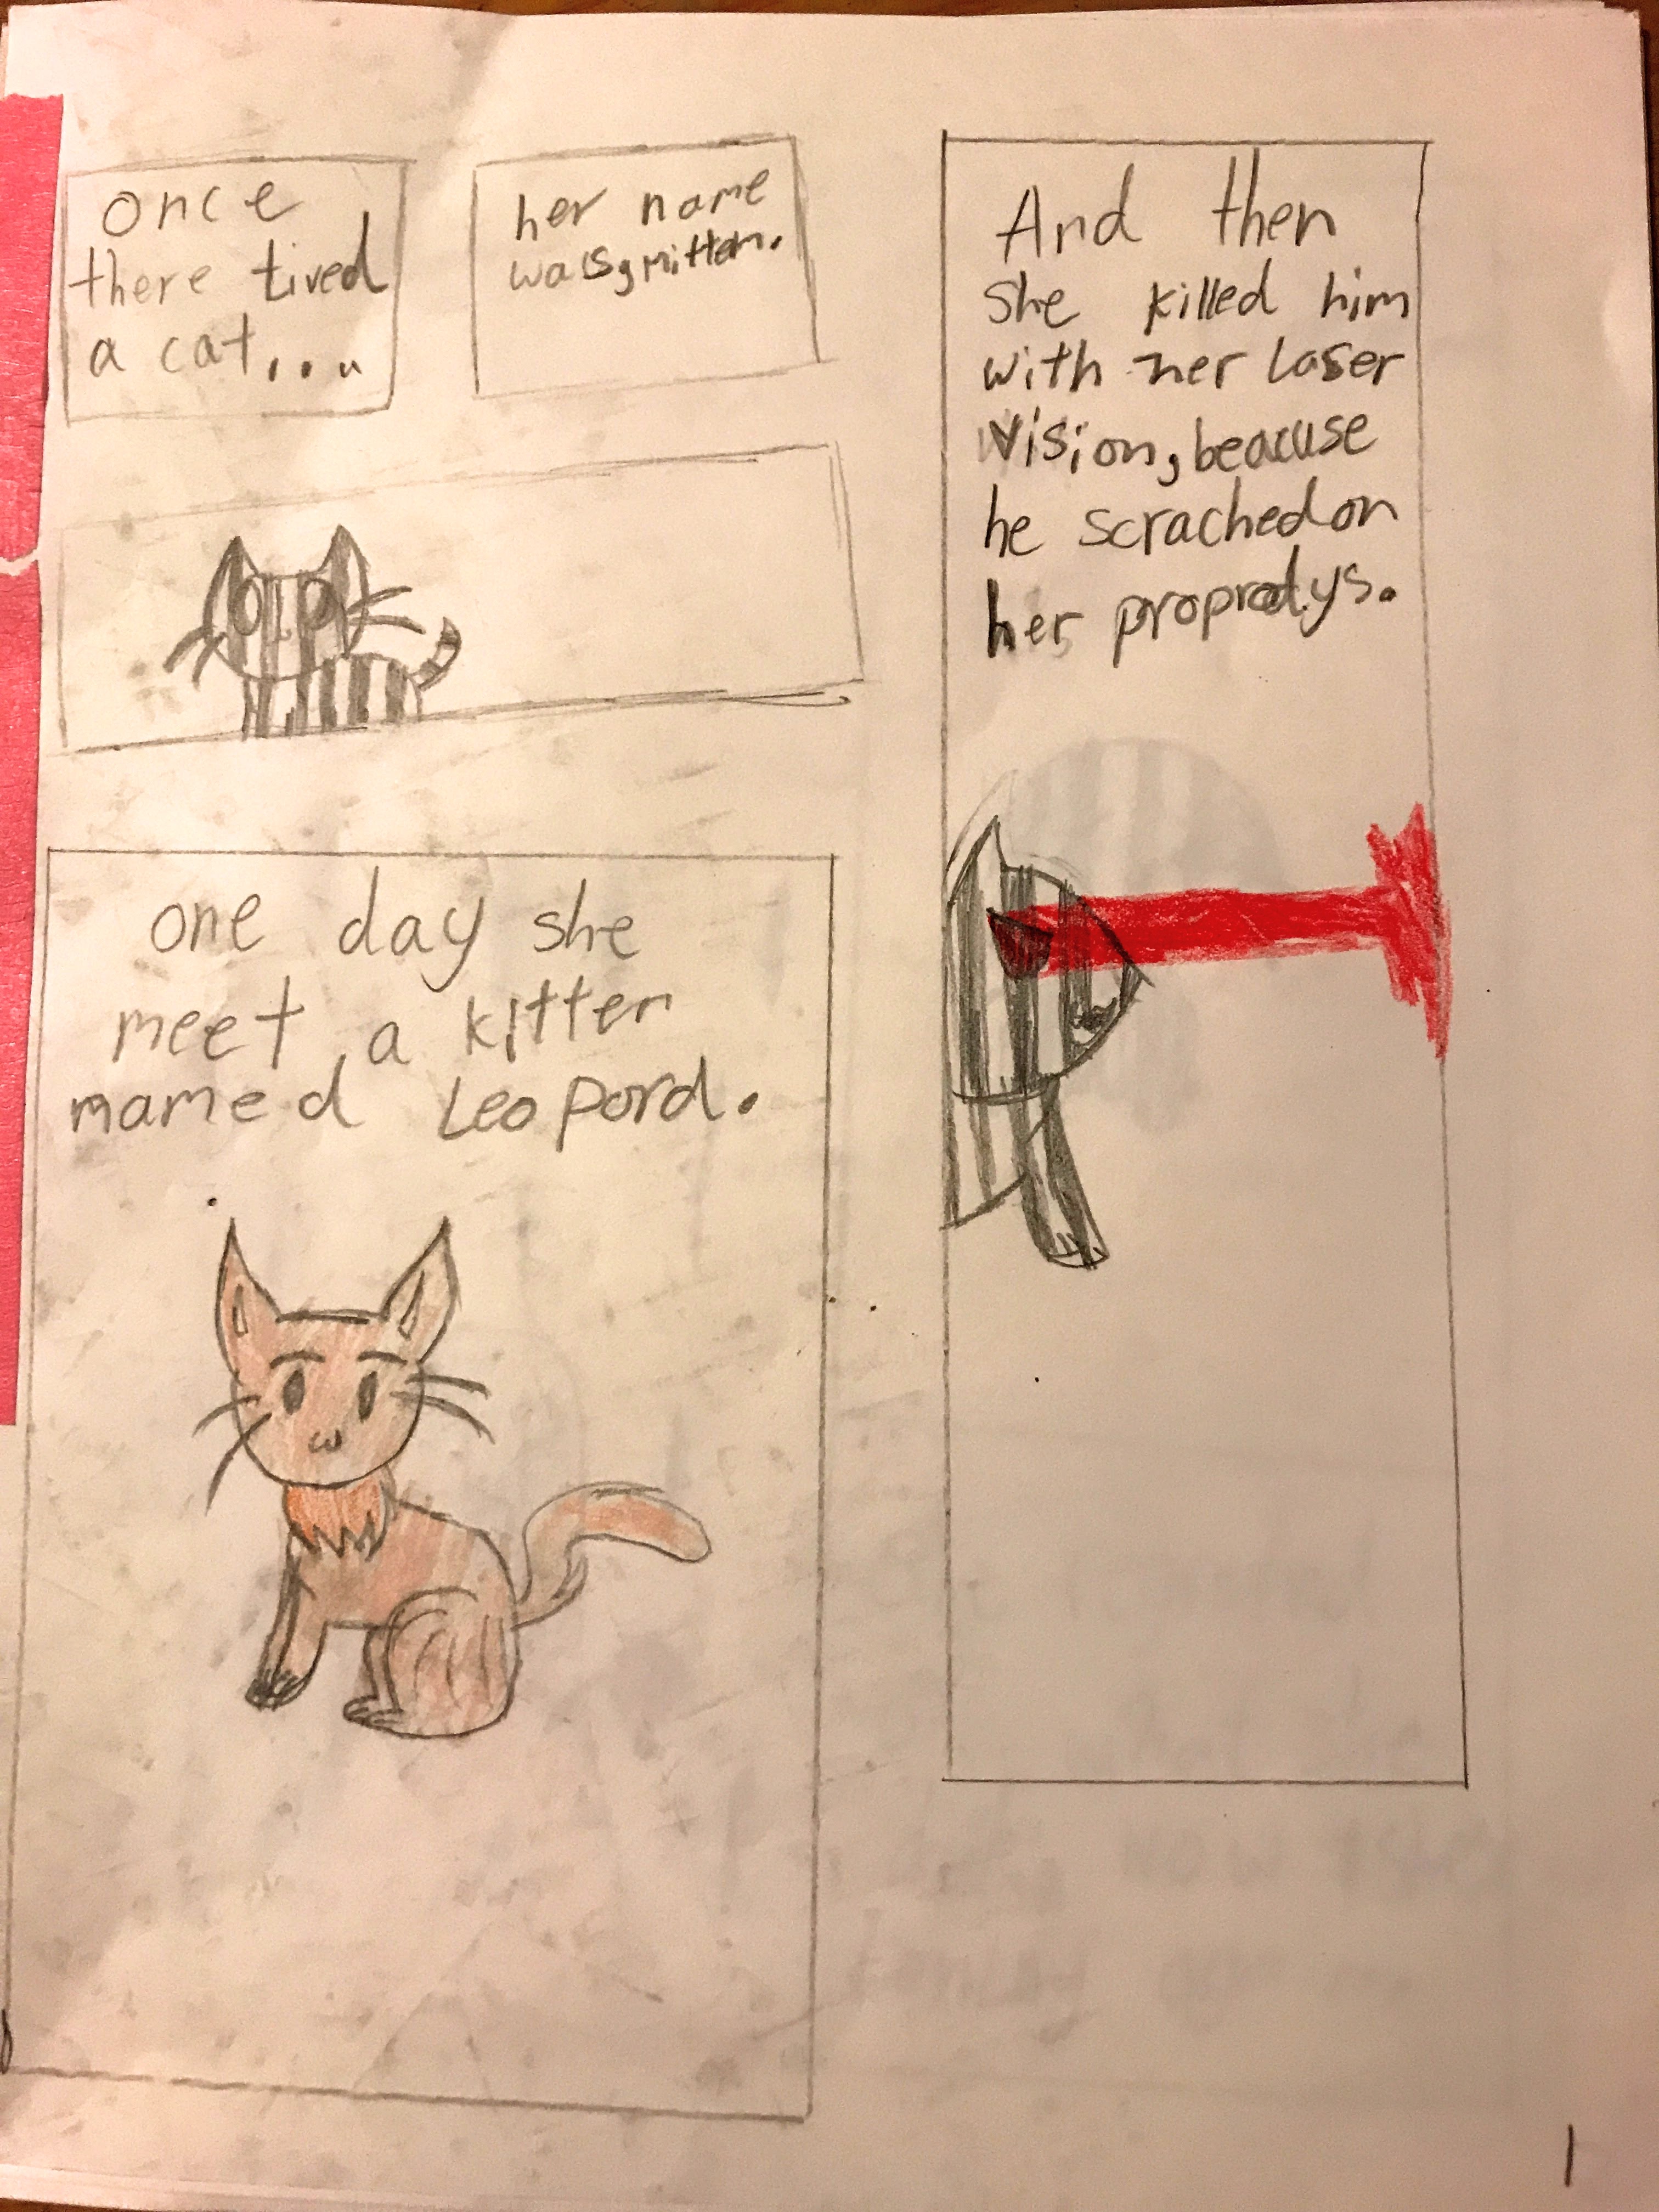 once
there lived
a cat....
her name
was, mitten.
one day she
meet a kitten
named Leopord.
And then
she killed him
with her laser
vision, beacuse
he scrached on
her propretys.
1